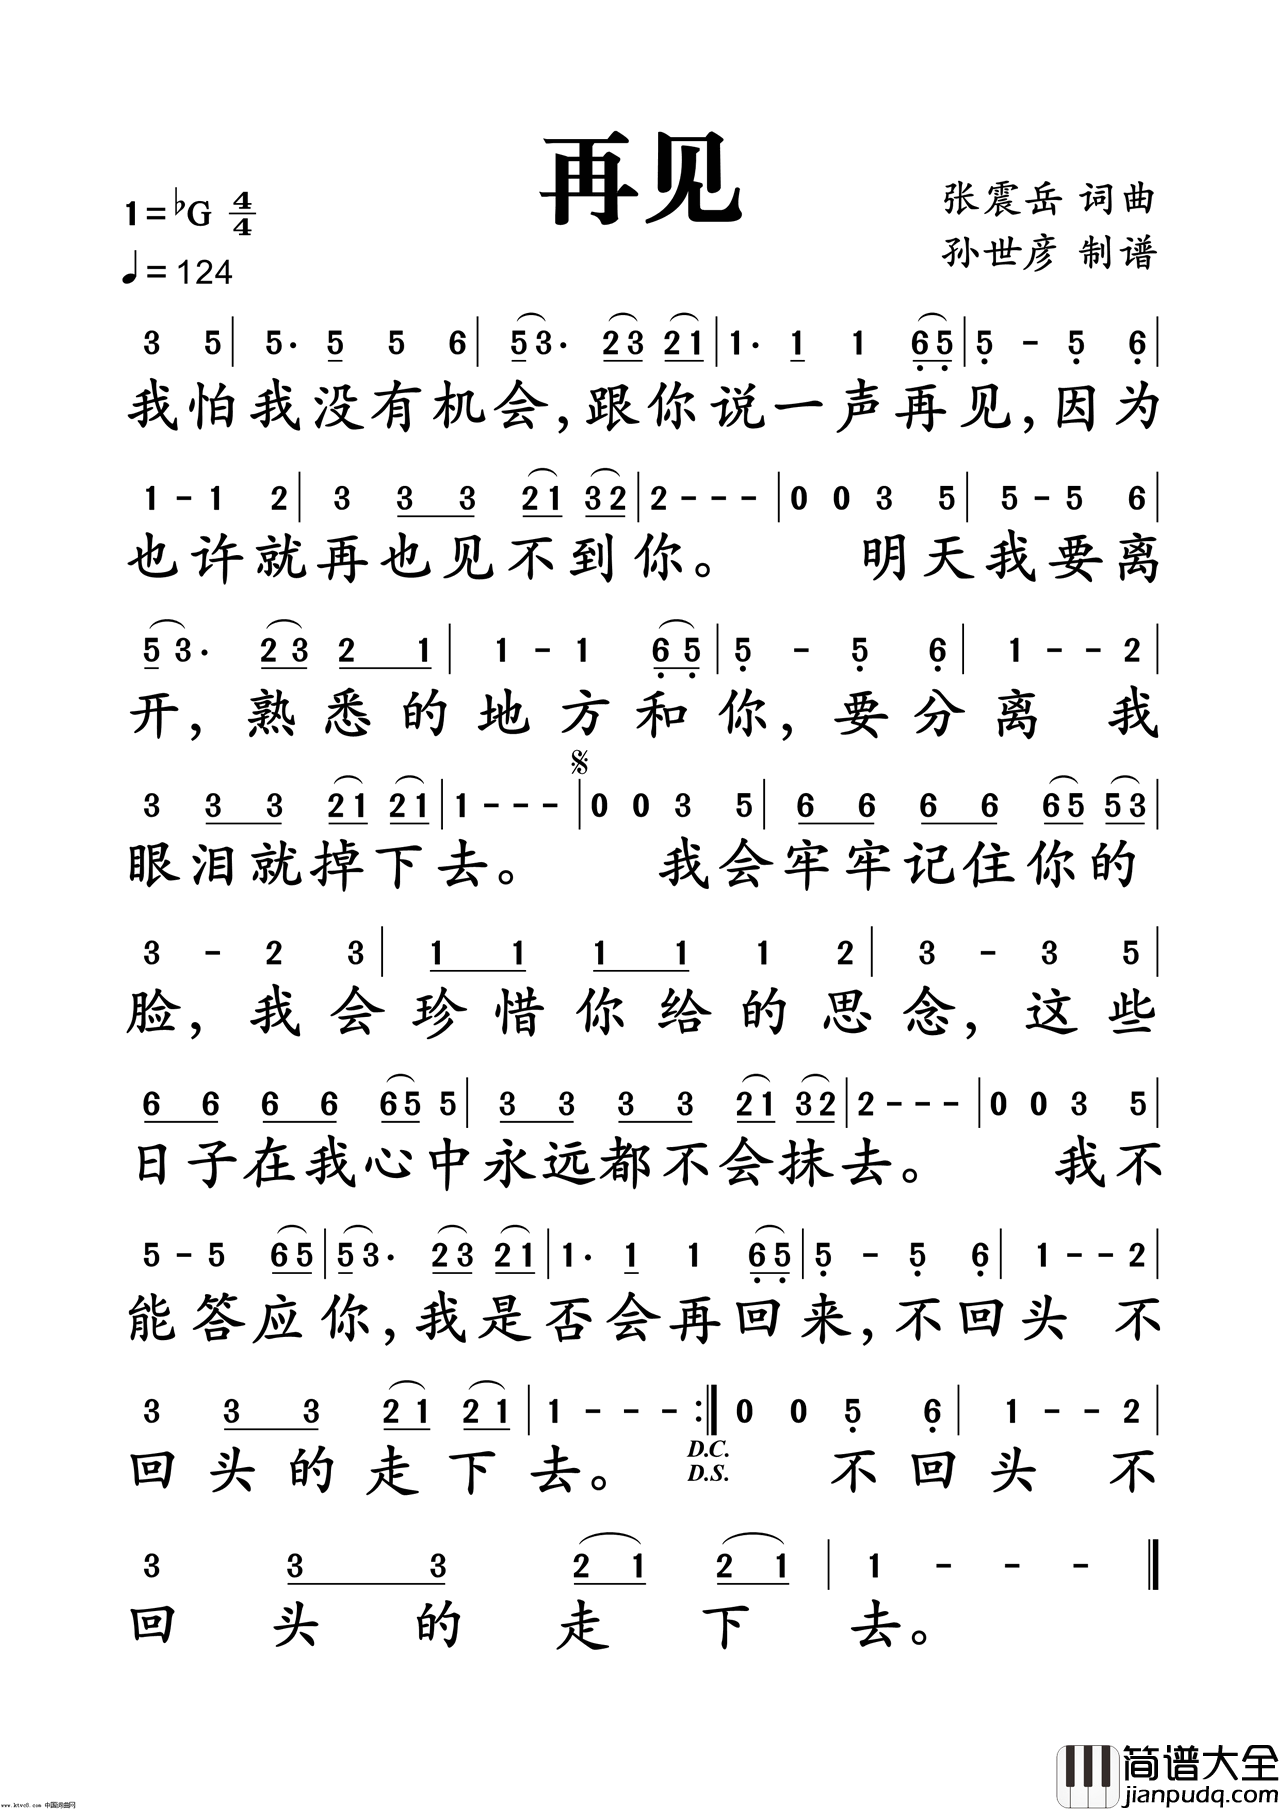 再见
1=♭G 4/4
张震岳 词曲
♩=124
孙世彦 制谱
3 5 | 5· 5 5 6 | 5 3· 2 3 2 1 | 1· 1 1 6 5 | 5 - 5 6 |
我怕我没有机会,跟你说一声再见,因为
1 - 1 2 | 3 3 3 2 1 3 2 | 2 - - - | 0 0 3 5 | 5 - 5 6 |
也许就再也见不到你。 明天我要离
5 3· 2 3 2 1 | 1 - 1 6 5 | 5 - 5 6 | 1 - - 2 |
开,熟悉的地方和你,要分离 我
𝄋
3 3 3 2 1 2 1 | 1 - - - | 0 0 3 5 | 6 6 6 6 6 5 5 3 |
眼泪就掉下去。 我会牢牢记住你的
3 - 2 3 | 1 1 1 1 1 2 | 3 - 3 5 |
脸,我会珍惜你给的思念,这些
6 6 6 6 6 5 5 | 3 3 3 3 2 1 3 2 | 2 - - - | 0 0 3 5 |
日子在我心中永远都不会抹去。 我不
5 - 5 6 5 | 5 3· 2 3 2 1 | 1· 1 1 6 5 | 5 - 5 6 | 1 - - 2 |
能答应你,我是否会再回来,不回头 不
3 3 3 2 1 2 1 | 1 - - - :‖ 0 0 5 6 | 1 - - 2 |
D.C.
D.S.
回头的走下去。 不回头 不
3 3 3 2 1 2 1 | 1 - - - ‖
回头的走下去。
简谱大全
jianpudq.com
www.ktvc8.com 中国词曲网